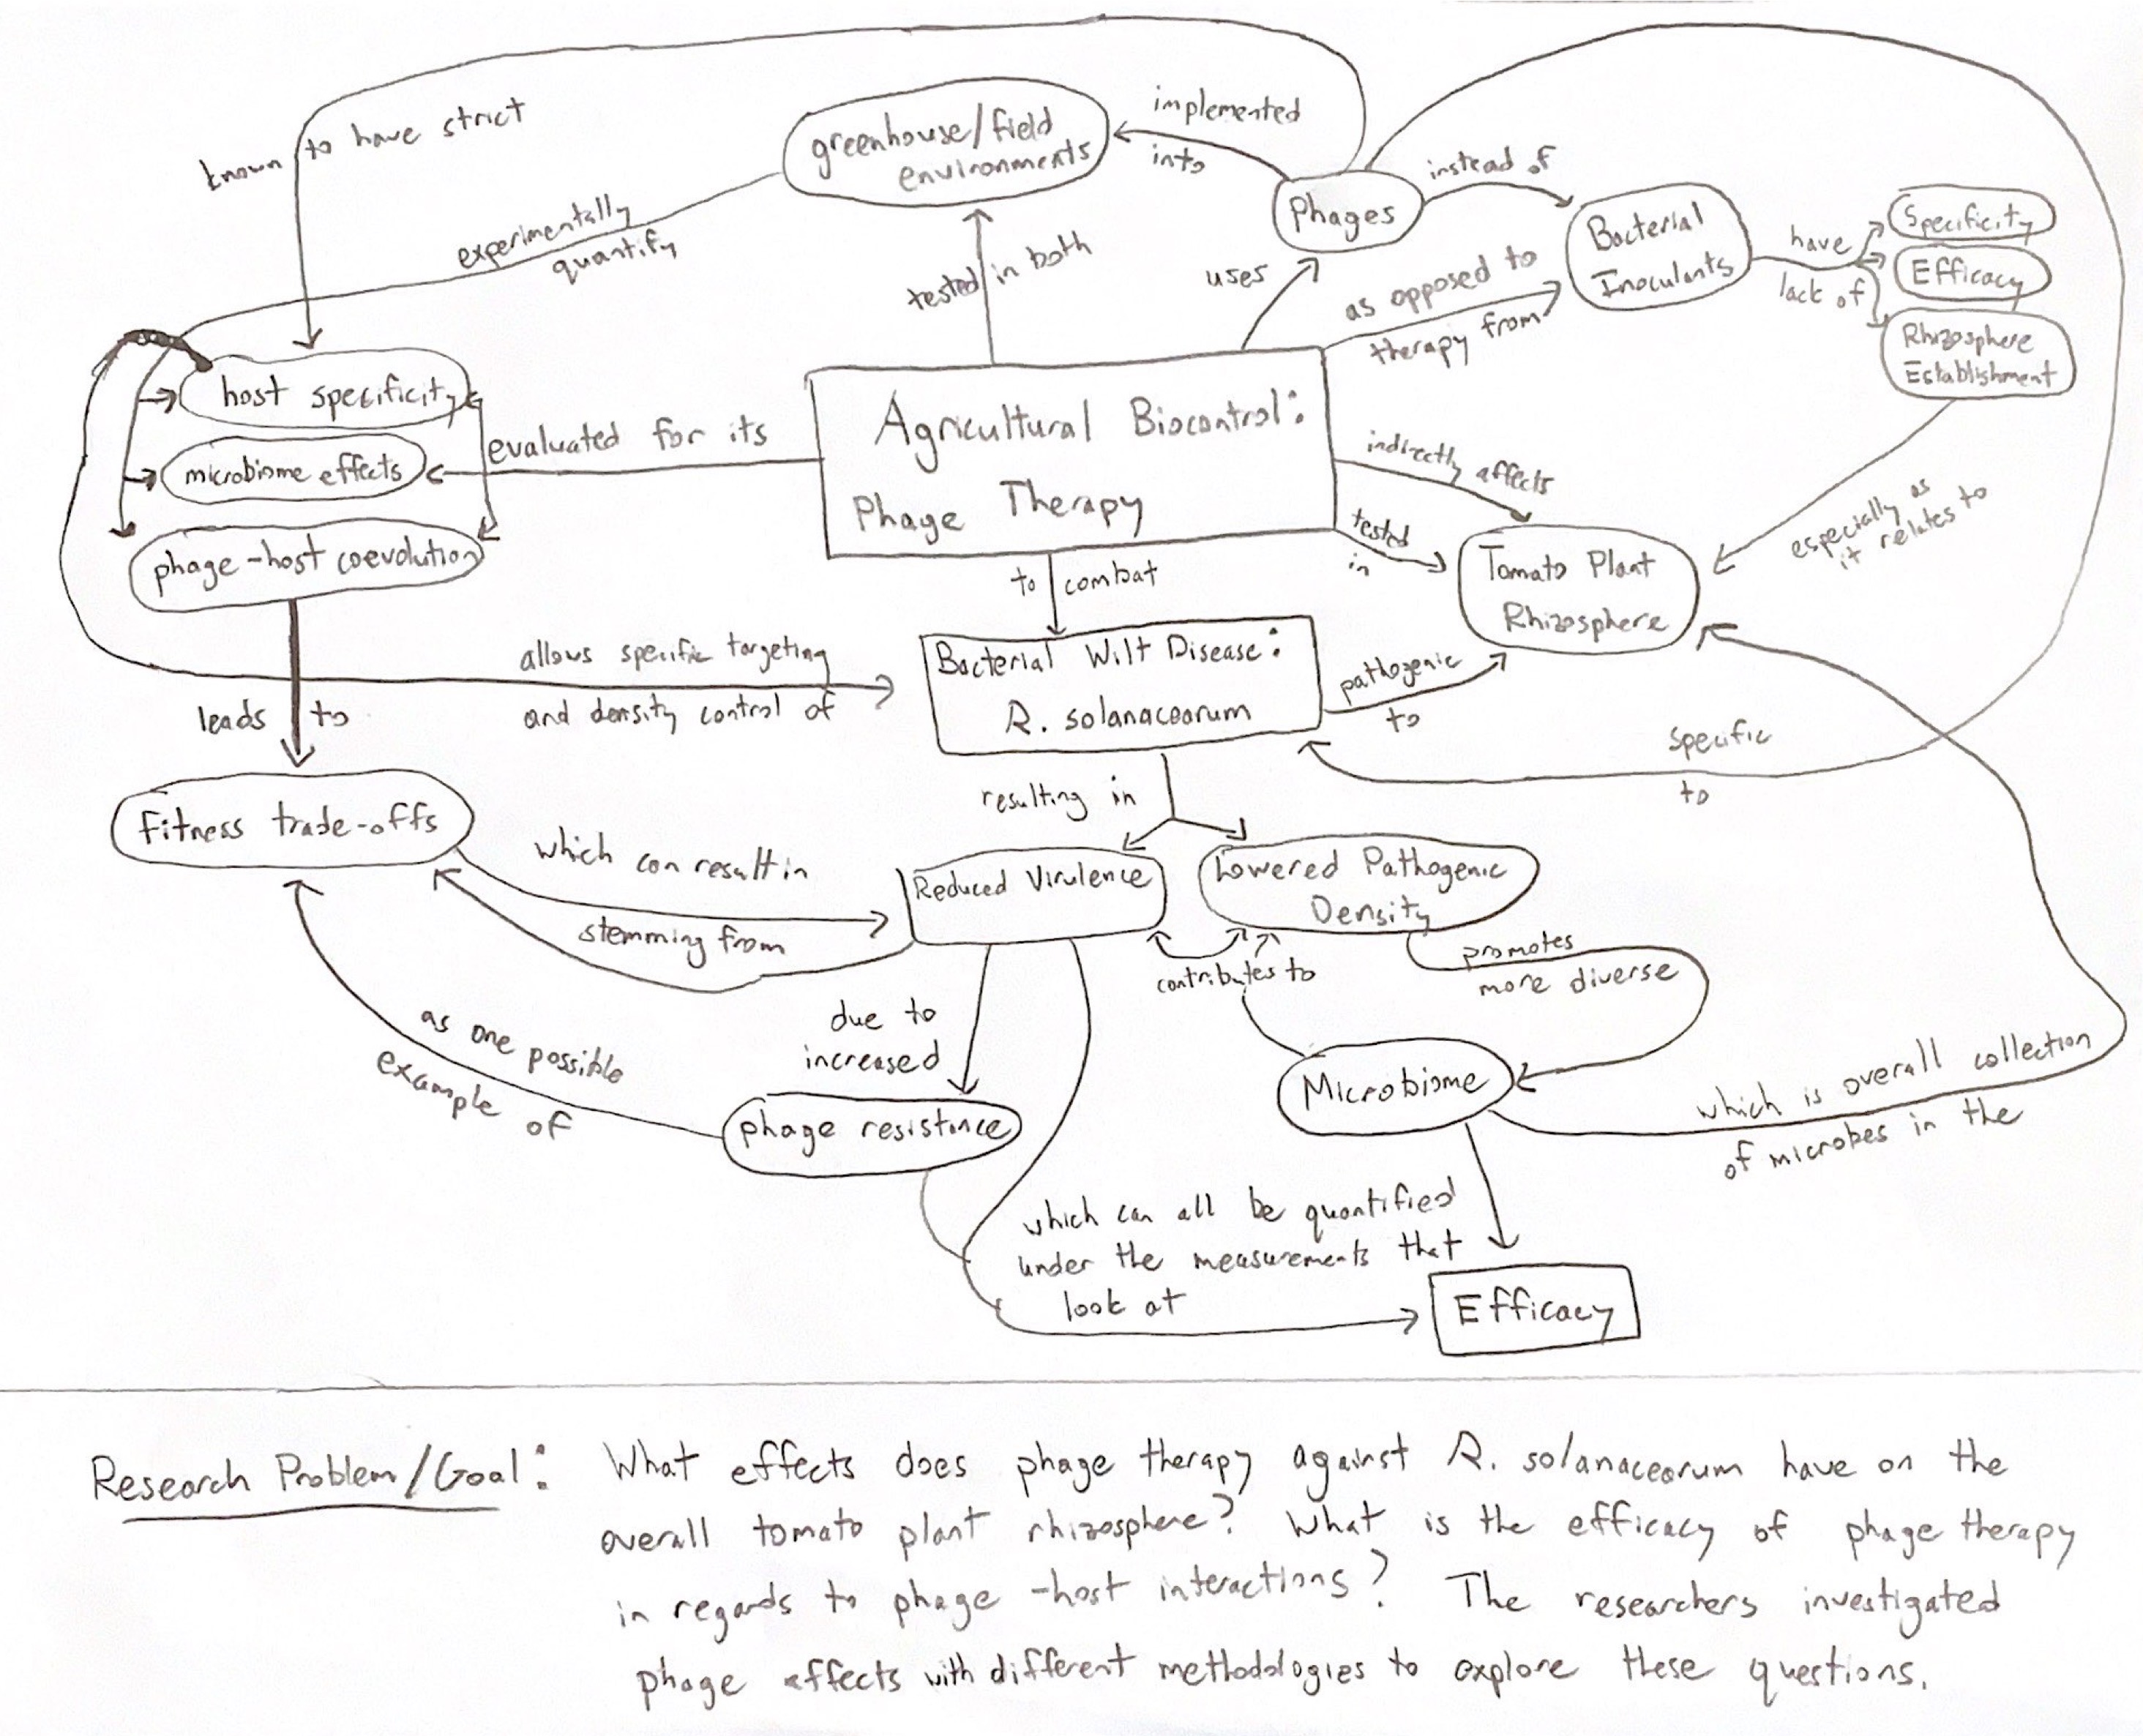 known to have strict
greenhouse/field
environments
implemented
into
Phages
instead of
Bacterial
Inoculants
have
lack of
Specificity
Efficacy
Rhizosphere
Establishment
experimentally
quantify
tested in both
uses
as opposed to
therapy from
host specificity
microbiome effects
phage-host coevolution
evaluated for its
Agricultural Biocontrol:
Phage Therapy
indirectly affects
tested
in
especially as
it relates to
Tomato Plant
Rhizosphere
to combat
allows specific targeting
and density control of
Bacterial Wilt Disease:
R. solanacearum
pathogenic
to
leads to
specific
to
resulting in
fitness trade-offs
which can result in
stemming from
Reduced Virulence
Lowered Pathogenic
Density
contributes to
promotes
more diverse
due to
increased
as one possible
example of
phage resistance
Microbiome
which is overall collection
of microbes in the
which can all be quantified
under the measurements that
look at
Efficacy
Research Problem/Goal: What effects does phage therapy against R. solanacearum have on the
overall tomato plant rhizosphere? What is the efficacy of phage therapy
in regards to phage-host interactions? The researchers investigated
phage effects with different methodologies to explore these questions.